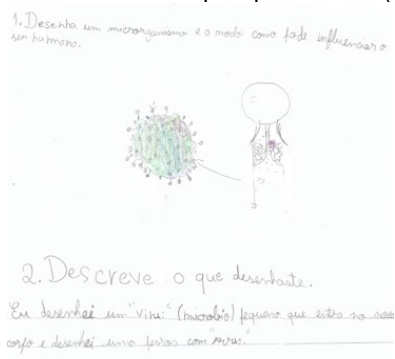 1. Desenha um microrganismo e o modo como pode influenciar o
ser humano.
2. Descreve o que desenhaste.
Eu desenhei um "viru" (micróbio) pequeno que entra no nosso
corpo e desenhei uma pessoa com "virus."